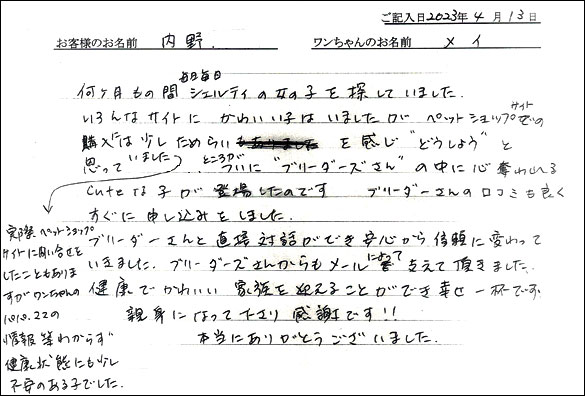 ご記入日2023年4月13日
お客様のお名前 内野. ワンちゃんのお名前 メイ
毎日毎日
何ヶ月もの間 シェルティの女の子を探していました.
いろんなサイトに かわいい子はいましたが ペットショップサイトでの
購入には少しためらい を感じ"どうしよう"と
思っていました ところが ついに"ブリーダーズさん"の中に心奪われる
cuteな子が 登場したのです ブリーダーさんの口コミも良く
すぐに申し込みをしました.
ブリーダーさんと直接対話ができ安心から信頼に変わって
いきました. ブリーダーズさんからもメールによって支えて頂きました.
健康でかわいい 家族を迎えることができ幸せ一杯です.
親身になって下さり感謝です!!
本当にありがとうございました.
実際ペットショップ
サイトに問い合せを
したこともありま
すがワンちゃんの
情報等わからず
健康状態にも少し
不安のある子でした.